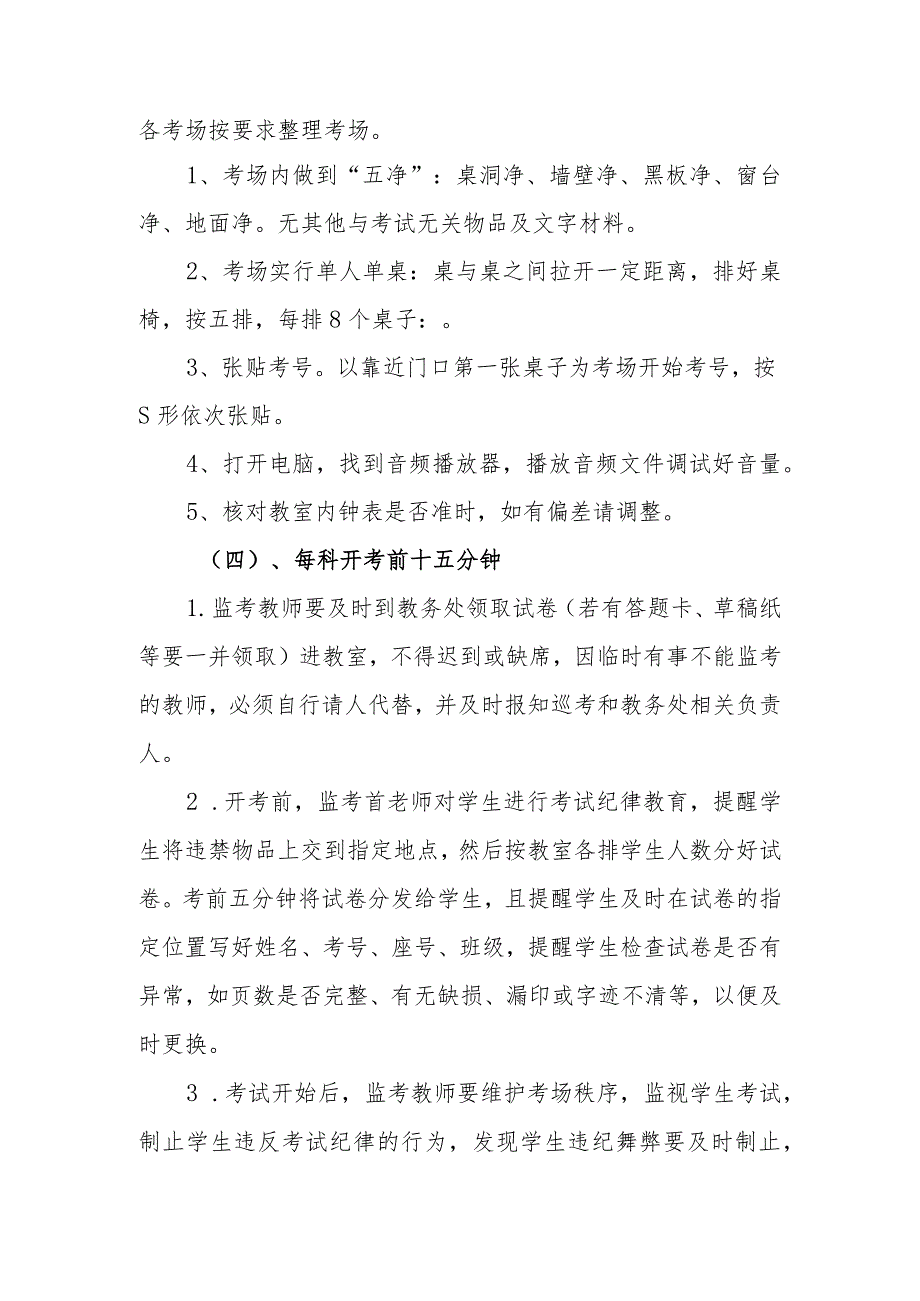 各考场按要求整理考场。
1、考场内做到“五净”：桌洞净、墙壁净、黑板净、窗台
净、地面净。无其他与考试无关物品及文字材料。
2、考场实行单人单桌：桌与桌之间拉开一定距离，排好桌
椅，按五排，每排8个桌子：。
3、张贴考号。以靠近门口第一张桌子为考场开始考号，按
S形依次张贴。
4、打开电脑，找到音频播放器，播放音频文件调试好音量。
5、核对教室内钟表是否准时，如有偏差请调整。
（四）、每科开考前十五分钟
1.监考教师要及时到教务处领取试卷（若有答题卡、草稿纸
等要一并领取）进教室，不得迟到或缺席，因临时有事不能监考
的教师，必须自行请人代替，并及时报知巡考和教务处相关负责
人。
2 .开考前，监考首老师对学生进行考试纪律教育，提醒学
生将违禁物品上交到指定地点，然后按教室各排学生人数分好试
卷。考前五分钟将试卷分发给学生，且提醒学生及时在试卷的指
定位置写好姓名、考号、座号、班级，提醒学生检查试卷是否有
异常，如页数是否完整、有无缺损、漏印或字迹不清等，以便及
时更换。
3 .考试开始后，监考教师要维护考场秩序，监视学生考试，
制止学生违反考试纪律的行为，发现学生违纪舞弊要及时制止，